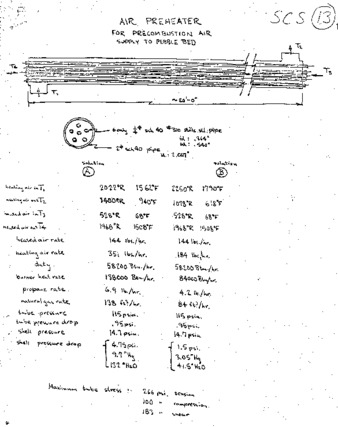 SCS 13
AIR PREHEATER
FOR PRECOMBUSTION AIR
SUPPLY TO PEBBLE BED
T2
T4
T3
T1
~ 20'-0"
¼" sch 40 pipe
id: .364"
od: .540"
2" sch 40 pipe
id: 2.067"
solution A
solution B
heating air in T1 2022°R 1562°F 2250°R 1790°F
heating air out T2 1400°R 940°F 1078°R 618°F
heated air in T3 528°R 68°F 528°R 68°F
heated air out T4 1968°R 1508°F 1968°R 1508°F
heated air rate 144 lbs/hr. 144 lbs/hr.
heating air rate 351 lbs/hr. 184 lbs/hr.
duty 58200 Btu/hr. 58200 Btu/hr.
burner heat rate 138000 Btu/hr. 84000 Btu/hr.
propane rate 6.9 lb/hr. 4.2 lb/hr.
natural gas rate 138 ft³/hr. 84 ft³/hr.
tube pressure 115 psia. 115 psia.
tube pressure drop .95 psi. .95 psi.
shell pressure 14.7 psia. 14.7 psia
shell pressure drop 4.75 psi. 1.5 psi.
9.7 "Hg 3.05 "Hg
132 "H2O 41.5 "H2O
Maximum tube stress :- 266 psi, tension
100 " compression.
183 " shear